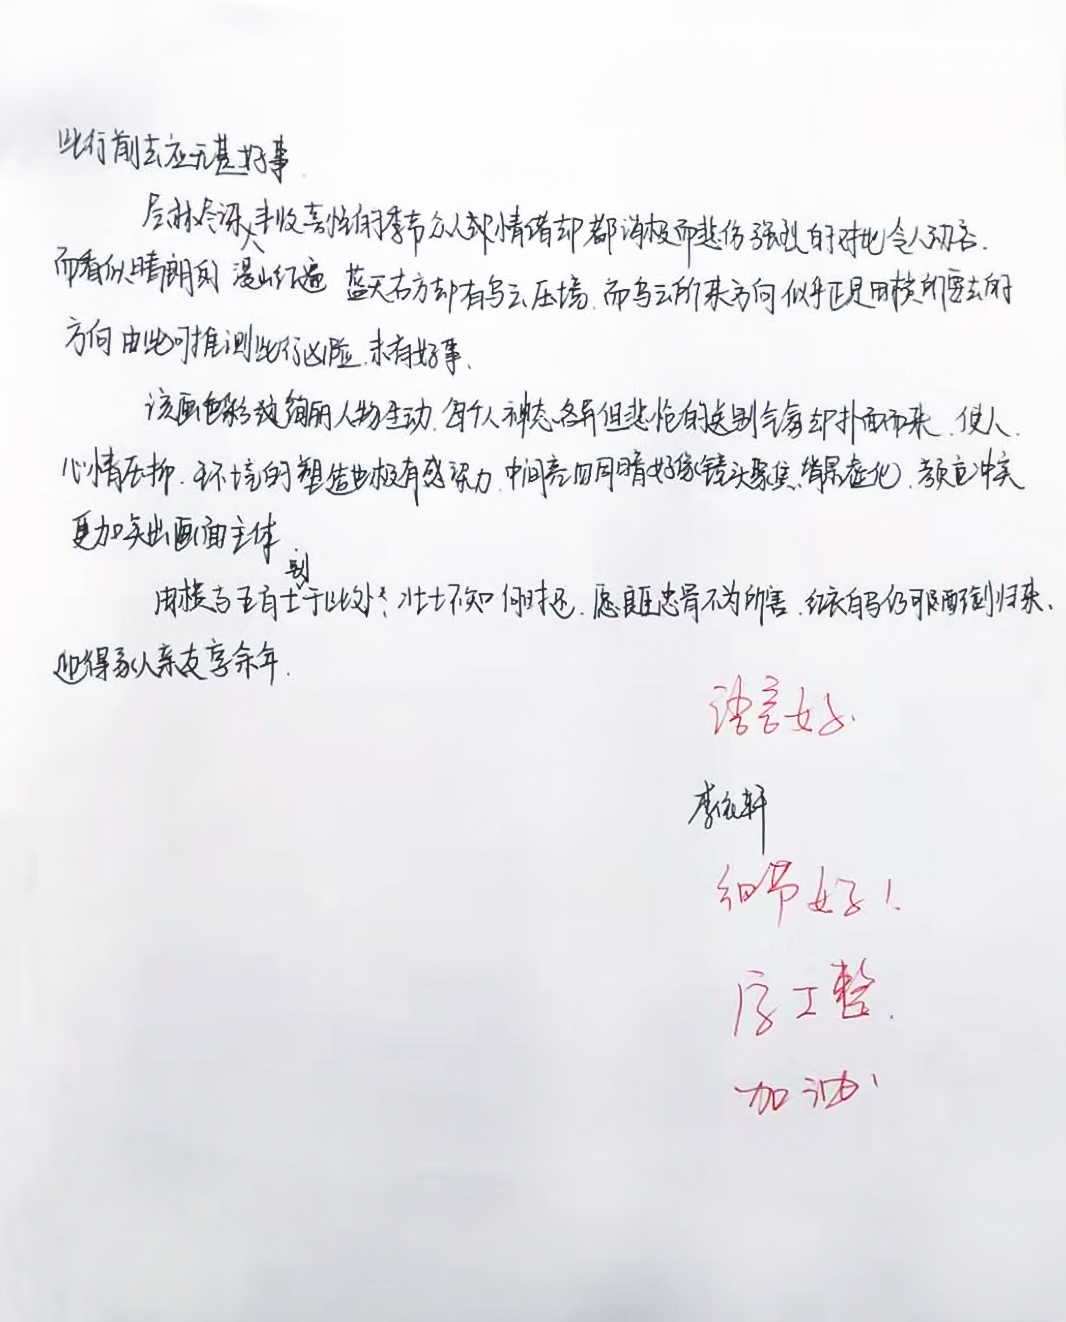 此行前去应无甚好事.
层林尽深,丰收喜悦的季节众人却情绪却都消极而悲伤 强烈的对比令人动容.
而看似晴朗的 漫山红遍 蓝天右方却有乌云压境.而乌云所来方向 似乎正是田横所要去的
方向 由此可推测此行凶险.未有好事.
该画色彩绚丽人物生动.每个人神态各异但悲怆的送别气氛却扑面而来.使人.
心情压抑.环境的塑造也极有感染力.中间亮四周暗好像镜头聚焦背景虚化.颜色冲突
更加突出画面主体
田横与五百士别于此处.壮士不知何时还.愿良臣忠骨不为所害.红衣白马仍可配剑归来.
迎得家人亲友享余年.
语言好.
李依轩
细节好!
字工整.
加油!